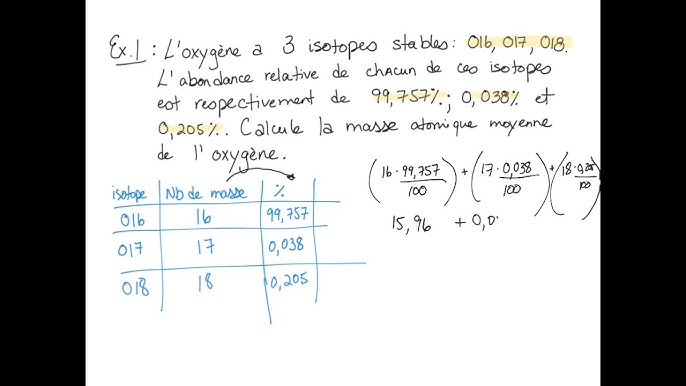 Ex.1 : L'oxygène a 3 isotopes stables: O16, O17, O18.
L'abondance relative de chacun de ces isotopes
est respectivement de 99,757%; 0,038% et
0,205%. Calcule la masse atomique moyenne
de l'oxygène.
isotope Nb de masse %
O16 16 99,757
O17 17 0,038
O18 18 0,205
(16·99,757/100) + (17·0,038/100) + (18·0,205/100)
15,96 + 0,0